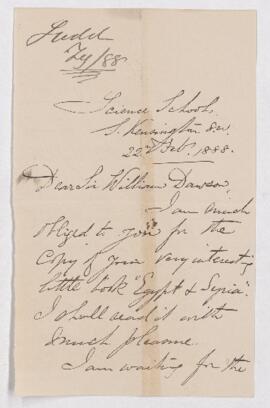 Judd
Fey/88
Science Schools,
S. Kensington S.W.
22nd Feb. 1888.
Dear Sir William Dawson,
I am much
obliged to you for the
copy of your very interestg
little book "Egypt & Syria".
I shall read it with
much pleasure.
I am waiting for the